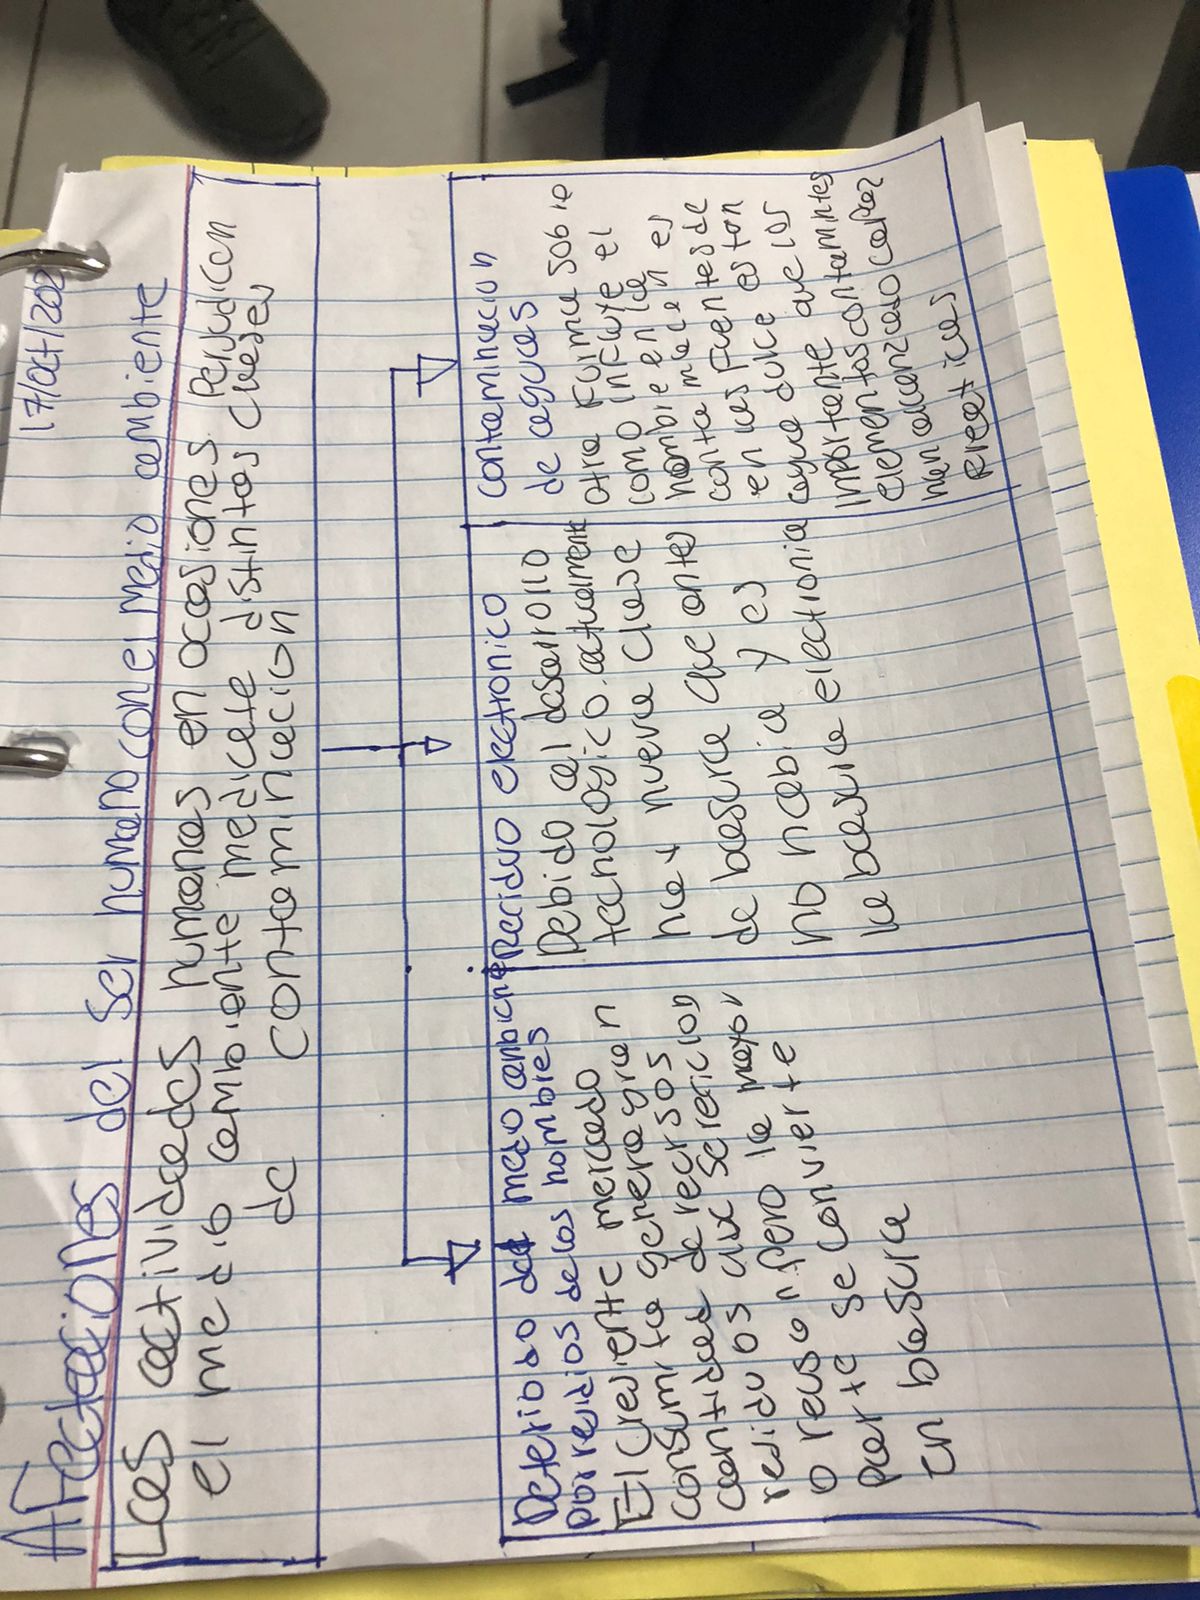 17/oct/202
AFectaciones del ser humano con el medio ambiente
Las actividades humanas en ocasiones perjudican
el medio ambiente mediante distintas clases
de contaminacion
Deterioso del medo ambiente
por residios de los hombres
El creciente mercado
consumita genera gran
cantidad de recrsos
residuos que sereficlon
o reusan pero la mayor
parte se convierte
en basura
Reciduo electronico
Debido al desarrollo
tecnologico. actualmente
hay nueva clase
de basura que antes
no habia y es
la basura electronia
contaminacion
de aguas
otra Forma sobre
como influye el
hombre en la
conta mi nacion es
en las fuentes de
agua dulce estan
importante que los
elementos contamintes
han alcanzado capaz
Freaticas